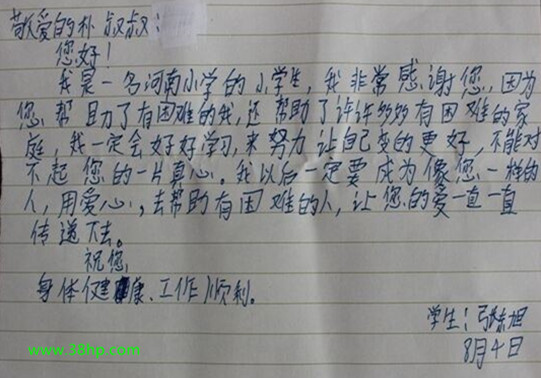 敬爱的朴叔叔:
您好!
我是一名河南小学的小学生,我非常感谢您,因为
您帮助了有困难的我,还帮助了许许多多有困难的家
庭,我一定会好好学习,来努力让自己变的更好,不能对
不起您的一片真心。我以后一定要成为像您一样的
人,用爱心,去帮助有困难的人,让您的爱一直一直
传递下去。
祝您,
身体健康、工作顺利。
学生:张栋旭
8月4日
www.38hp.com